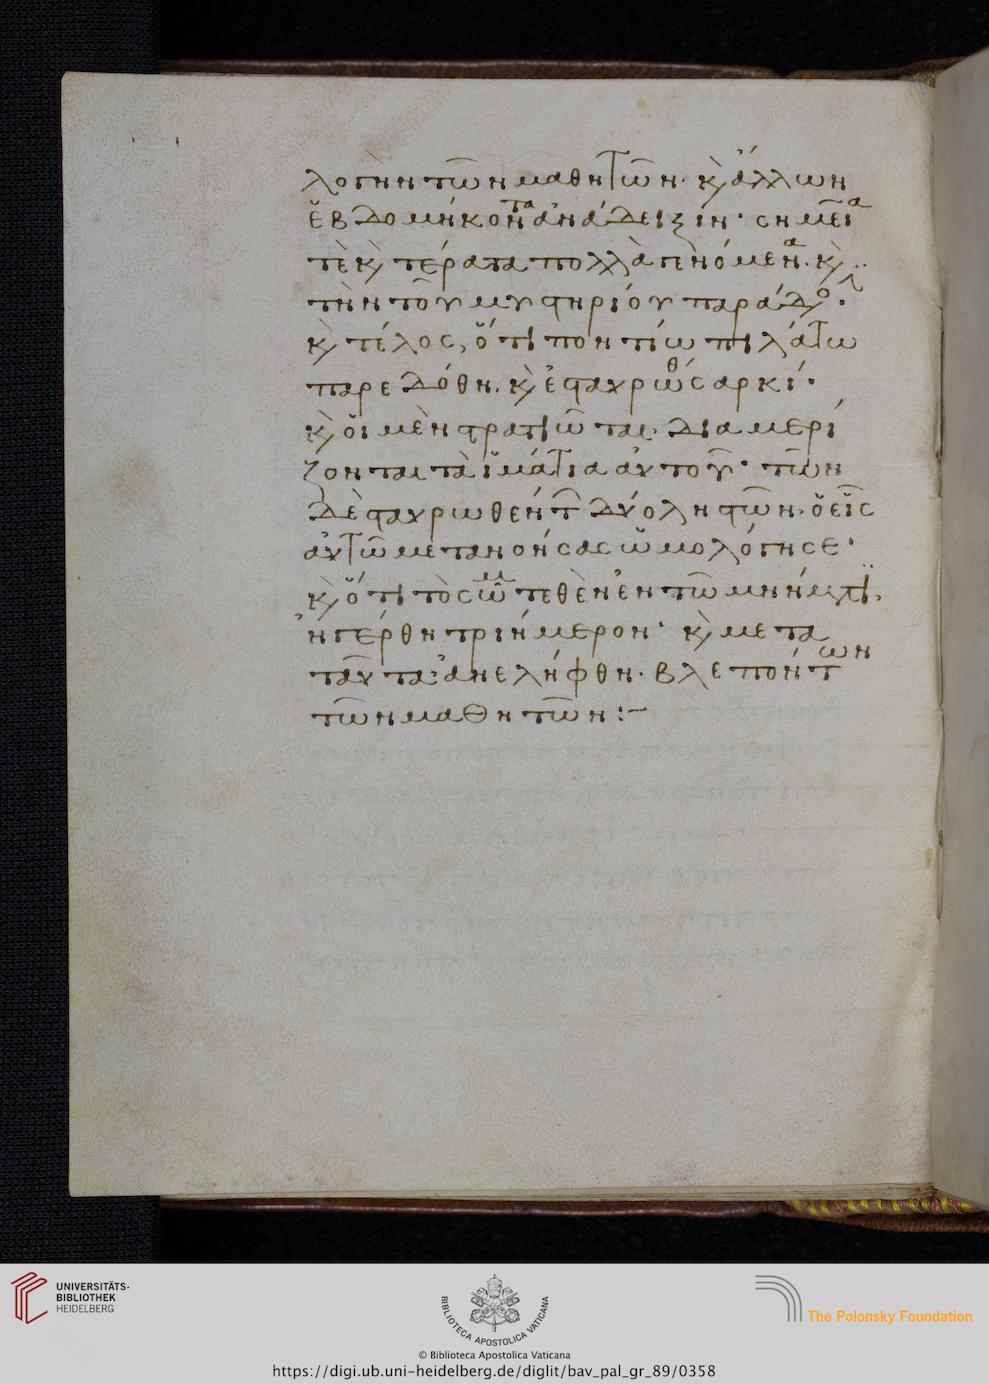 λογὴν τῶν μαθητῶν· κ(αὶ) ἄλλων
ἑβδομήκοντα ἀνάδειξιν· σημεῖα
τὲ κ(αὶ) τέρατα πολλὰ γενόμενα· κ(αὶ)
τὴν τοῦ μυστηρίου παράδο·
κ(αὶ) τέλος, ὅτι ποντίω πιλάτω
παρεδόθη. κ(αὶ) ἐσταυρώθ σαρκί·
κ(αὶ) οἱ μὲν στρατιῶται διαμερί
ζονται τὰ ἱμάτια αὐτοῦ· τῶν
δὲ σταυρωθέντ δύο ληστῶν· ὁ εἷς
αὐτῶ μετανοήσας ὡμολόγησε·
κ(αὶ) ὅτι τὸ σῶμ τεθὲν ἐν τῶ μνήματι,
ἠγέρθη τριήμερον· κ(αὶ) μετα
ταῦτα ἀνελήφθη· βλεπόντων
τῶν μαθητῶν :-
UNIVERSITÄTS-
BIBLIOTHEK
HEIDELBERG
BIBLIOTECA APOSTOLICA VATICANA
The Polonsky Foundation
© Biblioteca Apostolica Vaticana
https://digi.ub.uni-heidelberg.de/diglit/bav_pal_gr_89/0358